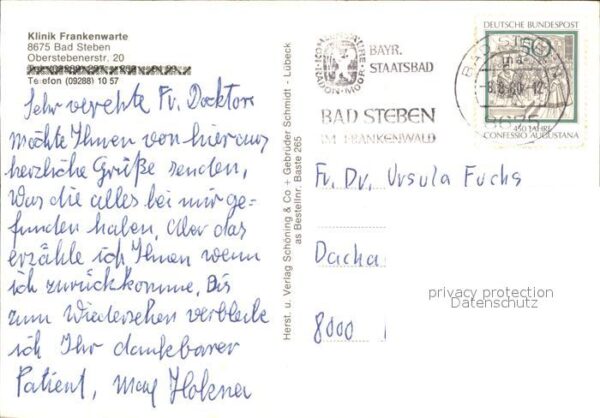 Klinik Frankenwarte
8675 Bad Steben
Oberstebenerstr. 20
Telefon (09288) 10 57
Sehr verehrte Fr. Doktor!
möchte Ihnen von hier aus
herzliche Grüße senden,
Was die alles bei mir ge-
funden haben. Aber das
erzähle ich Ihnen wenn
ich zurückkomme. Bis
zum Wiedersehen verbleibe
ich Ihr dankbarer
Patient,
Herst. u. Verlag Schöning & Co + Gebrüder Schmidt - Lübeck
as Bestellnr. Baste 265
BAYR.
STAATSBAD
BAD STEBEN
IM FRANKENWALD
BAD STEBEN
8675
DEUTSCHE BUNDESPOST
50
450 JAHRE
CONFESSIO AUGUSTANA
Fr. Dr. Ursula Fuchs
Dacha
8000
privacy protection
Datenschutz